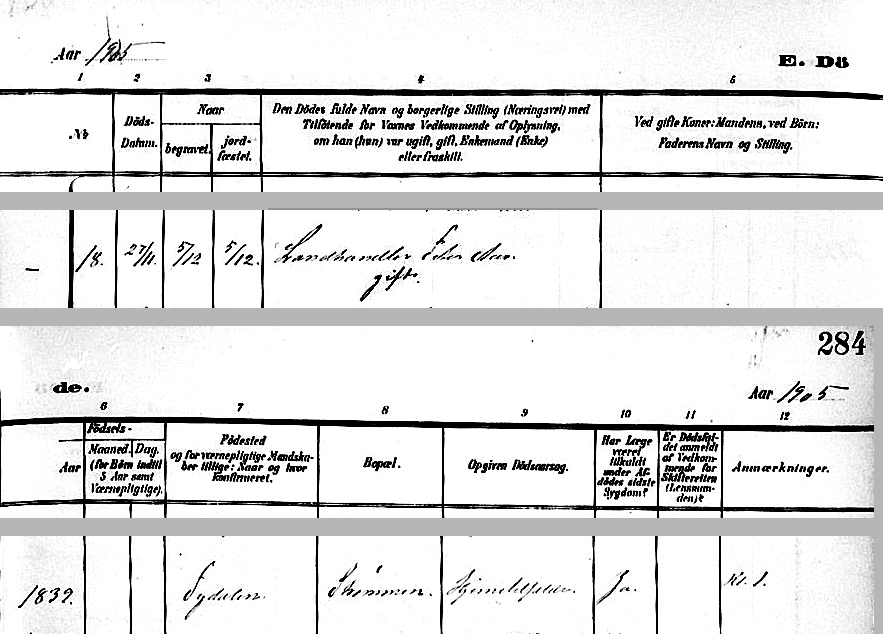 Aar 1905
E. Dö
1 2 3 4 5
Nº
Döds-
Datum.
Naar
begravet.
jord-
fæstet.
Den Dödes fulde Navn og borgerlige Stilling (Næringsvei) med
Tilföiende for Voxnes Vedkommende af Oplysning,
om han (hun) var ugift, gift, Enkemand (Enke)
eller fraskilt.
Ved gifte Koner: Mandens, ved Börn:
Faderens Navn og Stilling.
– 18. 27/11. 5/12 5/12. Landhandler Peter Aas.
gift.
284
de.
Aar 1905
6 7 8 9 10 11 12
Födsels-
Aar
Maaned. Dag.
(for Börn indtil
5 Aar samt
Værnepligtige).
Födested
og for værnepligtige Mandska-
ber tillige: Naar og hvor
konfirmeret.
Bopæl.
Opgiven Dödsaarsag.
Har Læge
været
tilkaldt
under Af-
dödes sidste
Sygdom?
Er Dödsfal-
det anmeldt
af Vedkom-
mende for
Skifteretten
(Lensman-
den)?
Anmærkninger.
1839. Tydalen. Strømmen. Ja. Kl. 1.